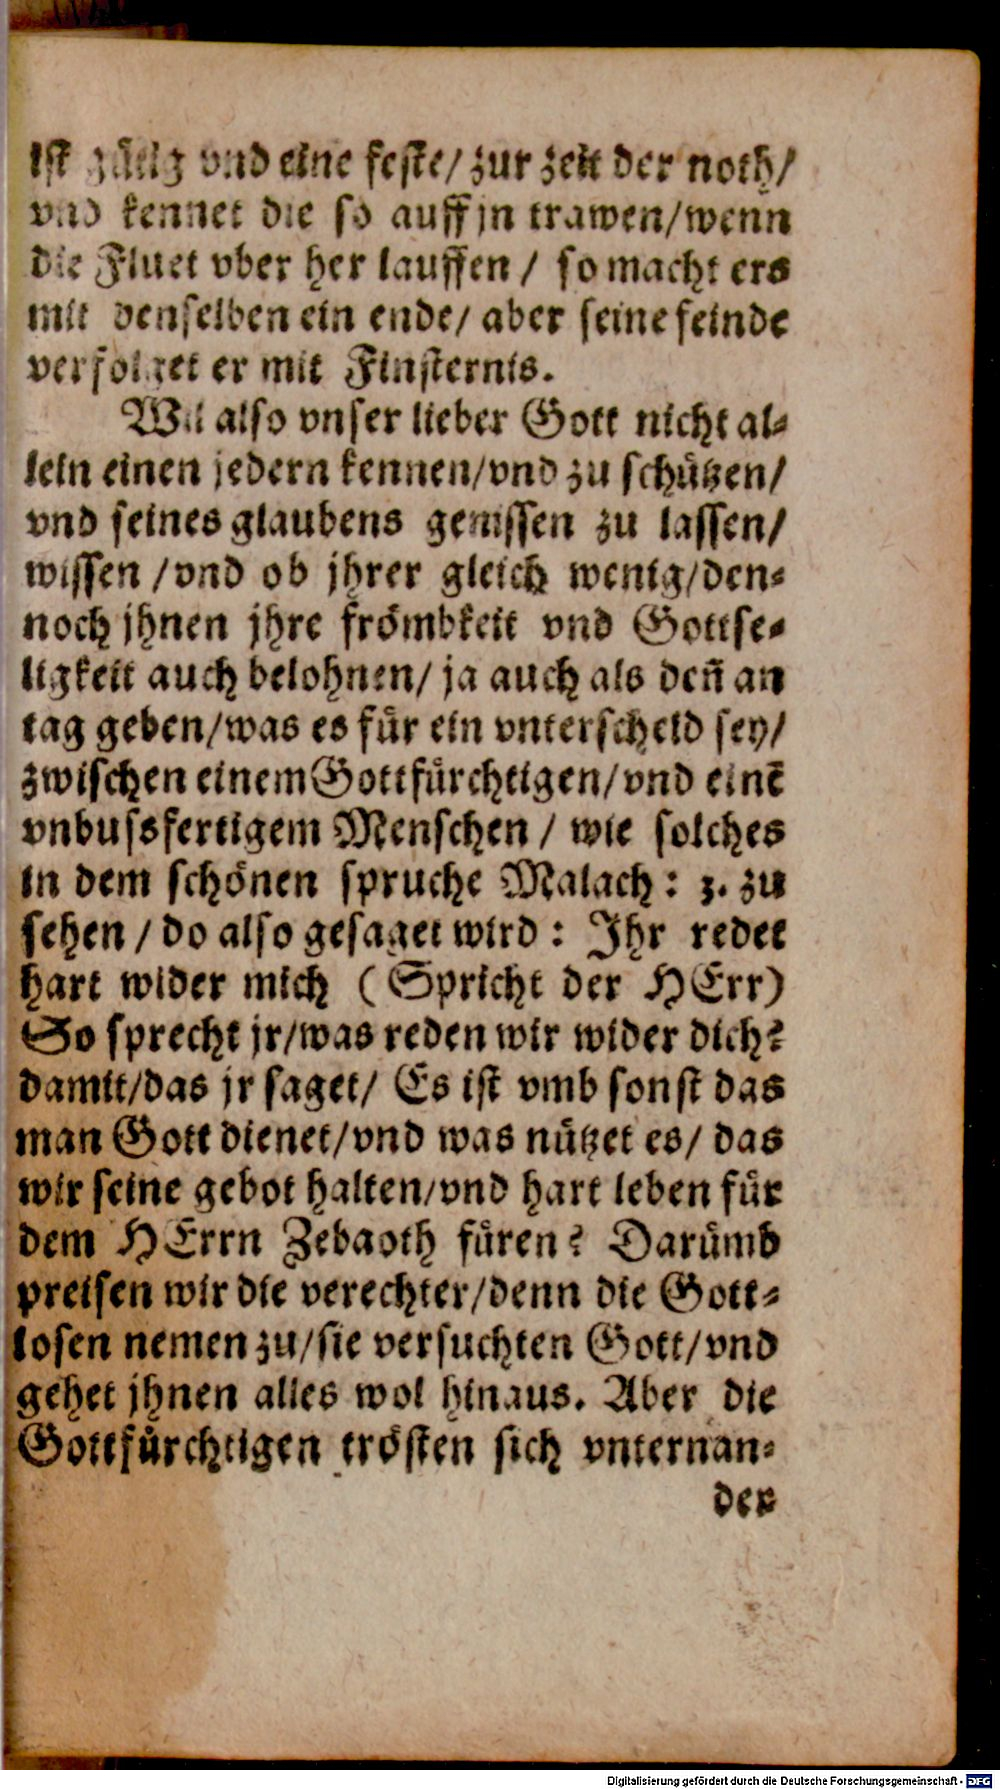 ist gütig vnd eine feste/ zur zeit der noth/
vnd kennet die so auff jn trawen/wenn
die Fluet vber her lauffen / so macht ers
mit denselben ein ende/ aber seine feinde
verfolget er mit Finsternis.
Wil also vnser lieber Gott nicht al⸗
lein einen jedern kennen/vnd zu schützen/
vnd seines glaubens genissen zu lassen/
wissen /vnd ob jhrer gleich wenig/den⸗
noch jhnen jhre frömbkeit vnd Gottse⸗
ligkeit auch belohnen/ ja auch als deñ an
tag geben/was es für ein vnterscheid sey/
zwischen einem Gottfürchtigen/vnd einē
vnbussfertigem Menschen / wie solches
in dem schönen spruche Malach: 3. zu
sehen / do also gesaget wird : Ihr redet
hart wider mich (Spricht der HErr)
So sprecht jr/was reden wir wider dich?
damit/das jr saget/ Es ist vmb sonst das
man Gott dienet/vnd was nützet es/ das
wir seine gebot halten/vnd hart leben für
dem HErrn Zebaoth füren? Darümb
preisen wir die verechter/denn die Gott⸗
losen nemen zu/sie versuchten Gott/vnd
gehet jhnen alles wol hinaus. Aber die
Gottfürchtigen trösten sich vnternan⸗
der
Digitalisierung gefördert durch die Deutsche Forschungsgemeinschaft - DFG